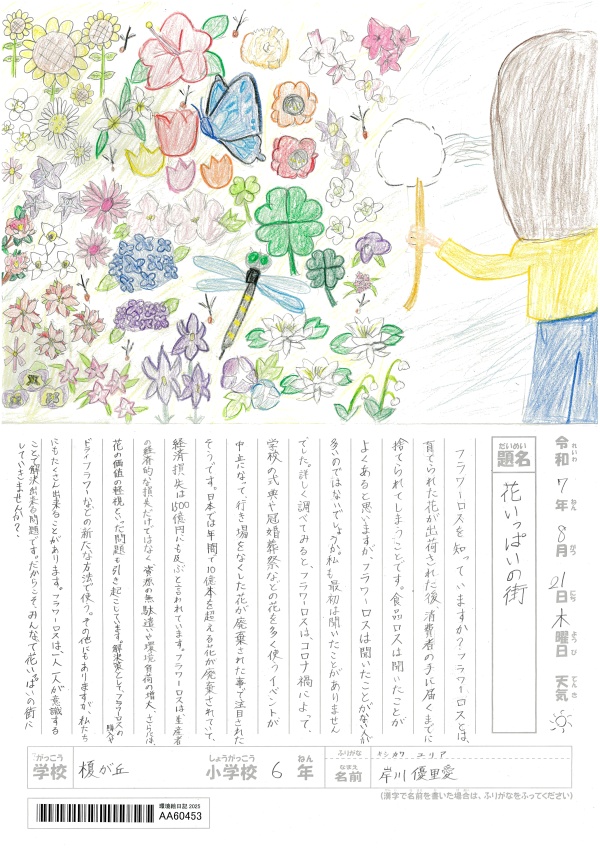 令和 れいわ 7年 ねん 8月 がつ 21日 にち 木曜日 ようび 天気 てんき
だいめい
題名 花いっぱいの街
フラワーロスを知っていますか?フラワーロスとは、
育てられた花が出荷された後、消費者の手に届くまでに
捨てられてしまうことです。食品ロスは聞いたことが
よくあると思いますが、フラワーロスは聞いたことがない人が
多いのではないでしょうか。私も最初は聞いたことがありません
でした。詳しく調べてみると、フラワーロスは、コロナ禍によって、
学校の式典や冠婚葬祭などの花を多く使うイベントが
中止になって行き場をなくした花が廃棄された事で注目された
そうです。日本では年間で10億本を超える花が廃棄されていて、
経済損失は1500億円にも及ぶと言われています。フラワーロスは、生産者
の経済的な損失だけではなく、資源の無駄遣いや環境負荷の増大、さらには、
花の価値の軽視といった問題も引き起こしています。解決策として、フラワーロスの
購入や
ドライフラワーなどの新たな方法で使う。その他にもありますが、私たち
にもたくさん出来ることがあります。フラワーロスは、一人一人が意識する
ことで解決出来る問題です。だからこそ、みんなで花いっぱいの街に
していきませんか?
がっこう 学校 榎が丘 しょうがっこう 小学校 6 ねん 年
ふりがな キシカワ ユリア
なまえ 名前 岸川 優里愛
(漢字で名前を書いた場合は、ふりがなをふってください)
環境絵日記 2025
AA60453